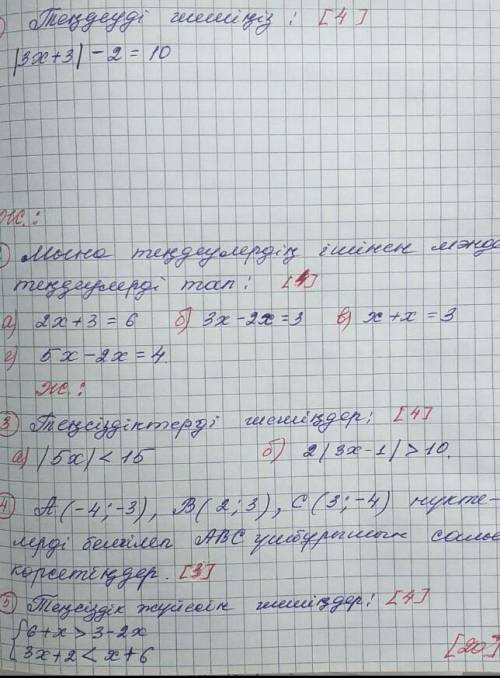 Теңдеуді шешіңіз: [4]
|3x+3| - 2 = 10
Ж.:
Мына теңдеулердің ішінен мәндес
теңдеулерді тап: [1]
а) 2x+3=6 б) 3x-2x=3 в) x+x=3
г) 5x-2x=4
Ж.:
3 Теңсіздіктерді шешіңдер: [4]
а) |5x|<15 б) 2|3x-1|>10.
4 A(-4;-3), B(2;3), C(3;-4) нүкте-
лерді белгілеп ABC үшбұрышын салып
көрсетіңдер. [3]
5 Теңсіздік жүйесін шешіңдер: [4]
{6+x>3-2x
{3x+2<x+6
[20]